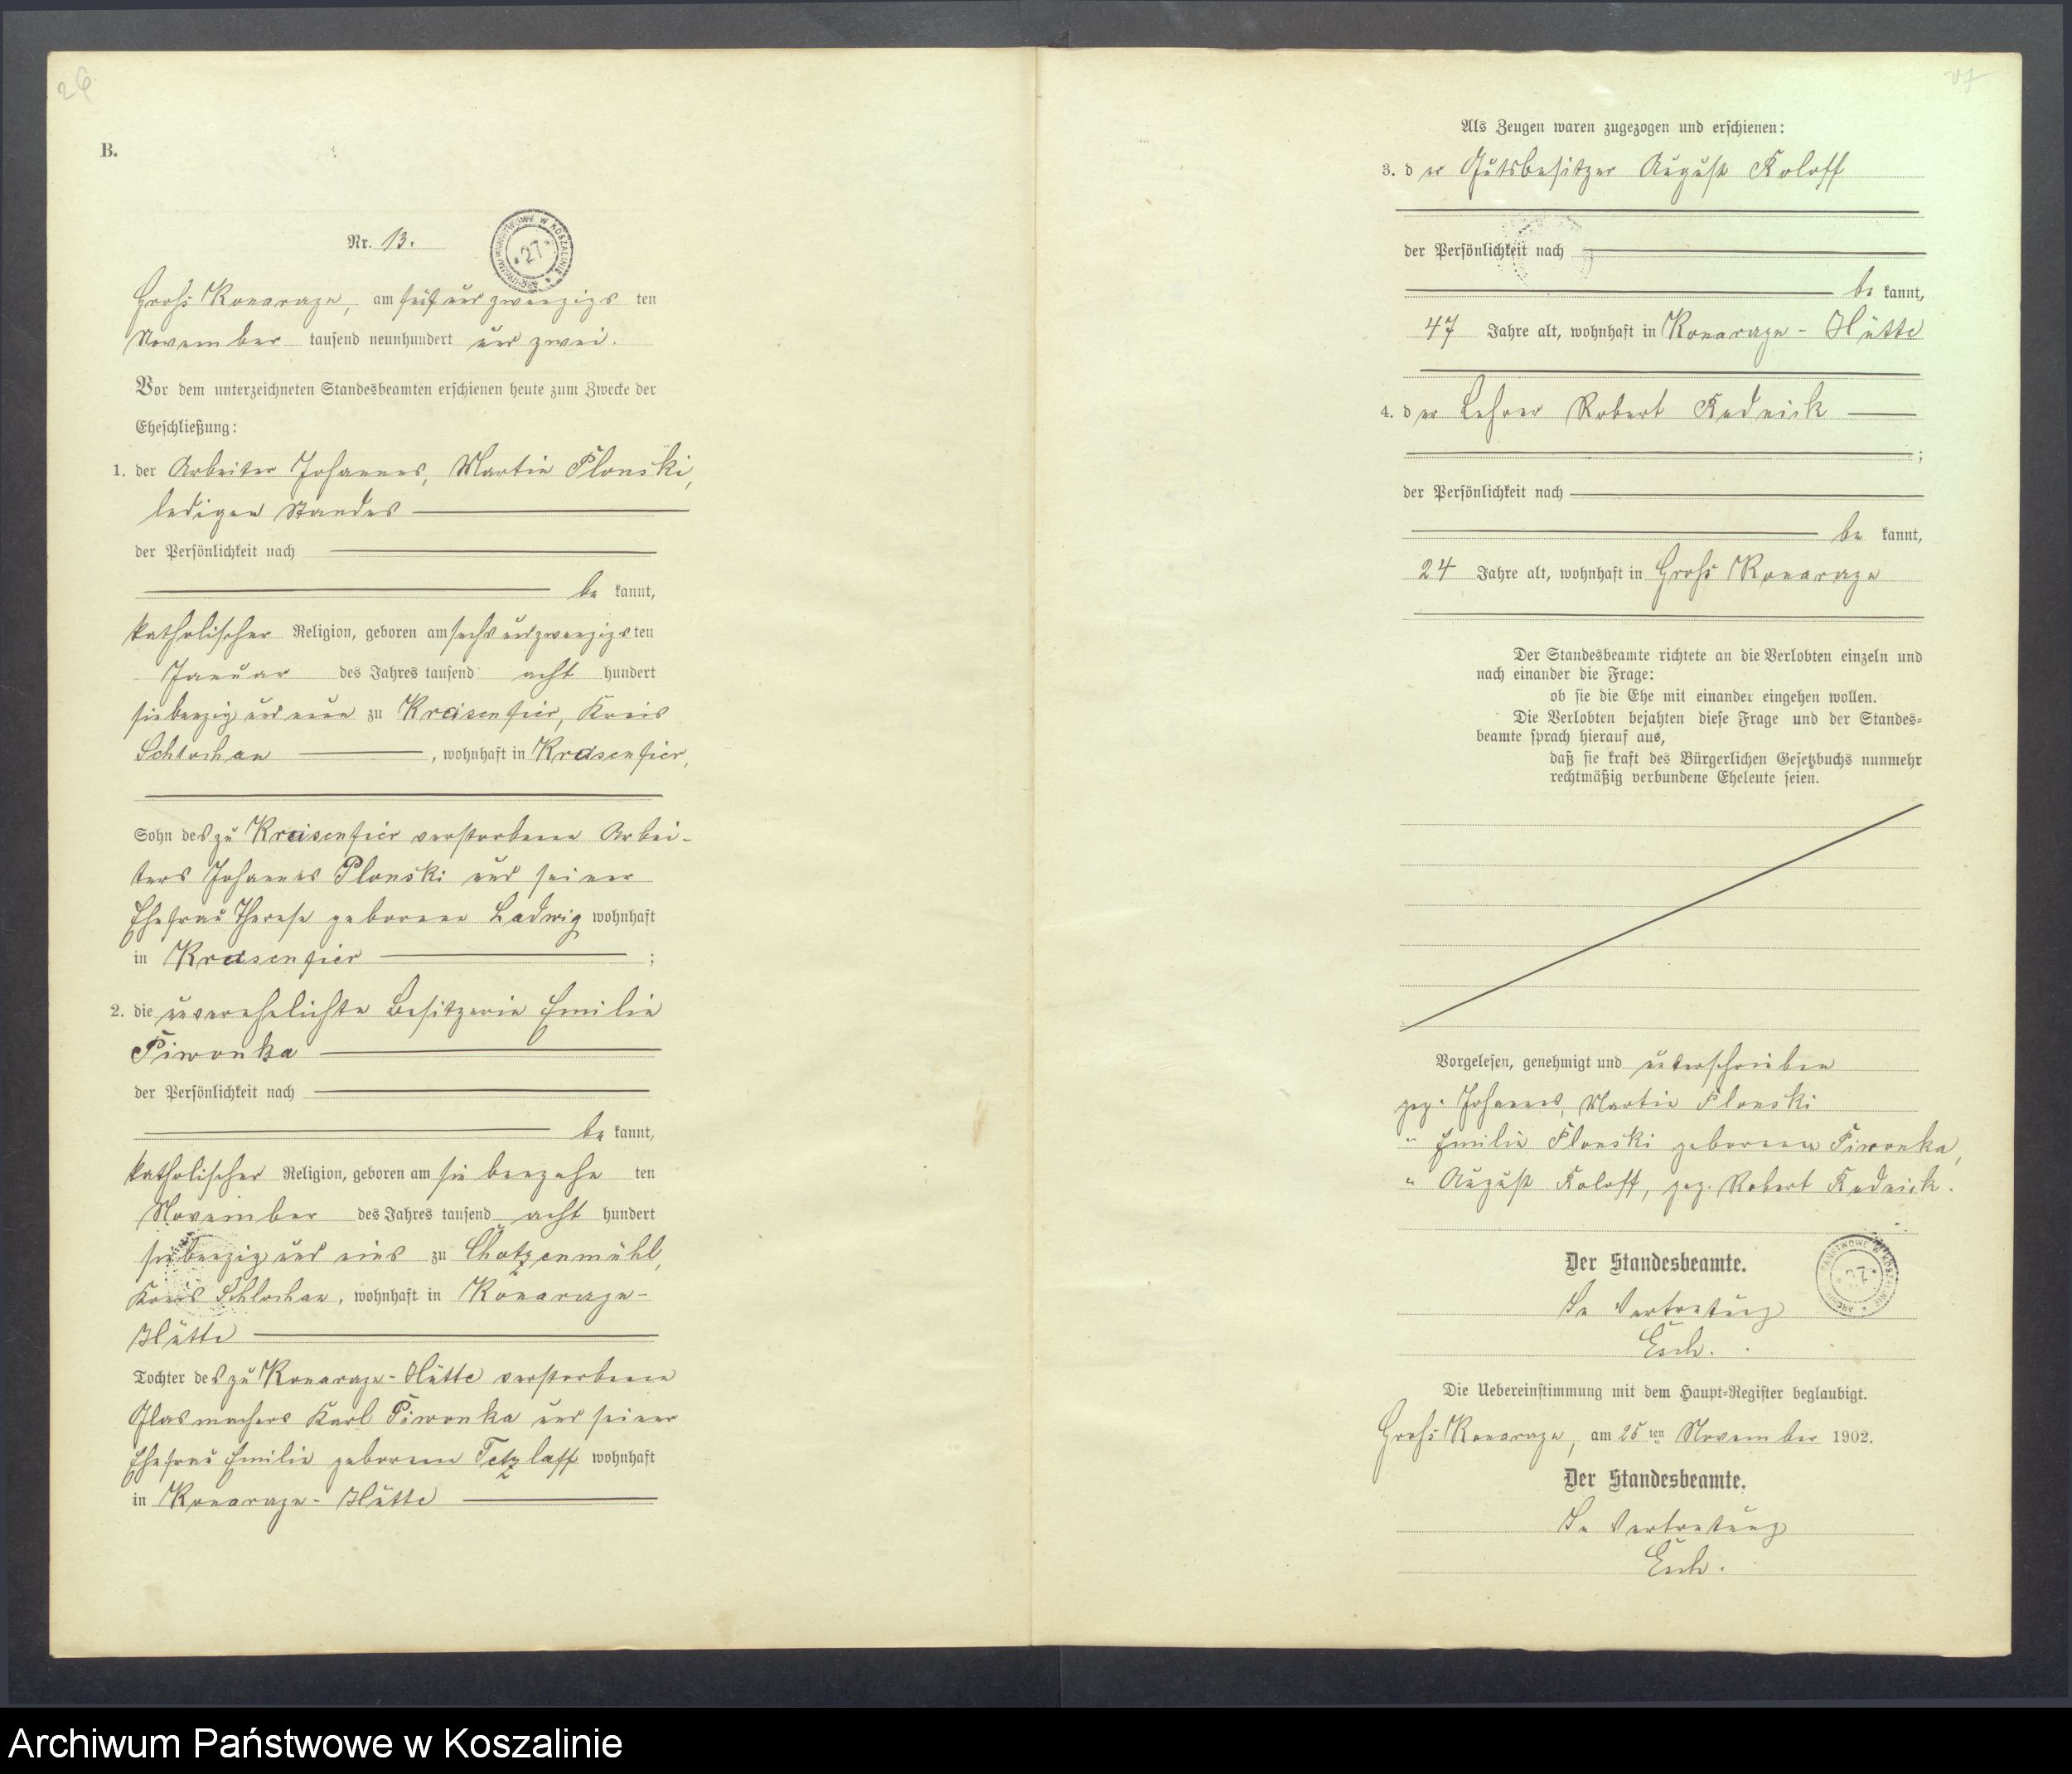 26
B.
Nr. 13.
Groß Konarzyn, am fünf und zwanzigs ten
November tausend neunhundert und zwei.
Vor dem unterzeichneten Standesbeamten erschienen heute zum Zwecke der
Eheschließung:
1. der Arbeiter Johannes, Martin Plonski,
ledigen Standes
der Persönlichkeit nach
be kannt,
katholischer Religion, geboren am sechs und zwanzigs ten
Januar des Jahres tausend acht hundert
siebenzig und neun zu Kraisenfier, Kreis
Schlochau, wohnhaft in Krasenfier,
Sohn des zu Kraisenfier verstorbenen Arbei-
ters Johannes Plonski und seiner
Ehefrau Therese geborenen Ladwig wohnhaft
in Krasenfier ;
2. die unverehelichte Besitzerin Emilie
Piwonka
der Persönlichkeit nach
be kannt,
katholischer Religion, geboren am siebenzehn ten
November des Jahres tausend acht hundert
siebenzig und eins zu Chotzenmühl,
Kreis Schlochau, wohnhaft in Konarzyn-
Hütte
Tochter des zu Konarzyn-Hütte verstorbenen
Glasmachers Karl Piwonka und seiner
Ehefrau Emilie geborenen Tetzlaff wohnhaft
in Konarzyn-Hütte
27
Als Zeugen waren zugezogen und erschienen:
3. d er Gutsbesitzer August Koloff
der Persönlichkeit nach
be kannt,
47 Jahre alt, wohnhaft in Konarzyn-Hütte
4. d er Lehrer Robert Rednick
;
der Persönlichkeit nach
be kannt,
24 Jahre alt, wohnhaft in Groß Konarzyn
Der Standesbeamte richtete an die Verlobten einzeln und
nach einander die Frage:
ob sie die Ehe mit einander eingehen wollen.
Die Verlobten bejahten diese Frage und der Standes=
beamte sprach hierauf aus,
daß sie kraft des Bürgerlichen Gesetzbuchs nunmehr
rechtmäßig verbundene Eheleute seien.
Vorgelesen, genehmigt und unterschrieben
gez. Johannes, Martin Plonski
" Emilie Plonski geborene Piwonka,
" August Koloff, gez. Robert Rednick.
Der Standesbeamte.
In Vertretung
Esch.
Die Uebereinstimmung mit dem Haupt=Register beglaubigt.
Groß Konarzyn, am 25 ten November 1902.
Der Standesbeamte.
In Vertretung
Esch.
Archiwum Państwowe w Koszalinie